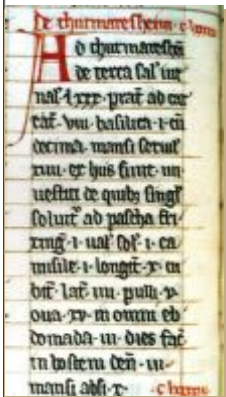 De thurmaresheim · c
Ad thurmaresheī
de terra sal' iur
nal' lxxx · prat' ad car
rat' · viii · basilica · i · cū
decima · mansi seruil'
xiiii · ex hıis sunt · iiii
uestiti de quib; singl'
soluūt ad pascha fri
xing' · i · ual' sol' · i · ca
misile · i · longit' · x · cu
bit' · lat' · iiii · pulli · v ·
oua · xv · in omni eb
domada · iii · dies fac̄
in hostem deñ · iii ·
mansi absi · x ·